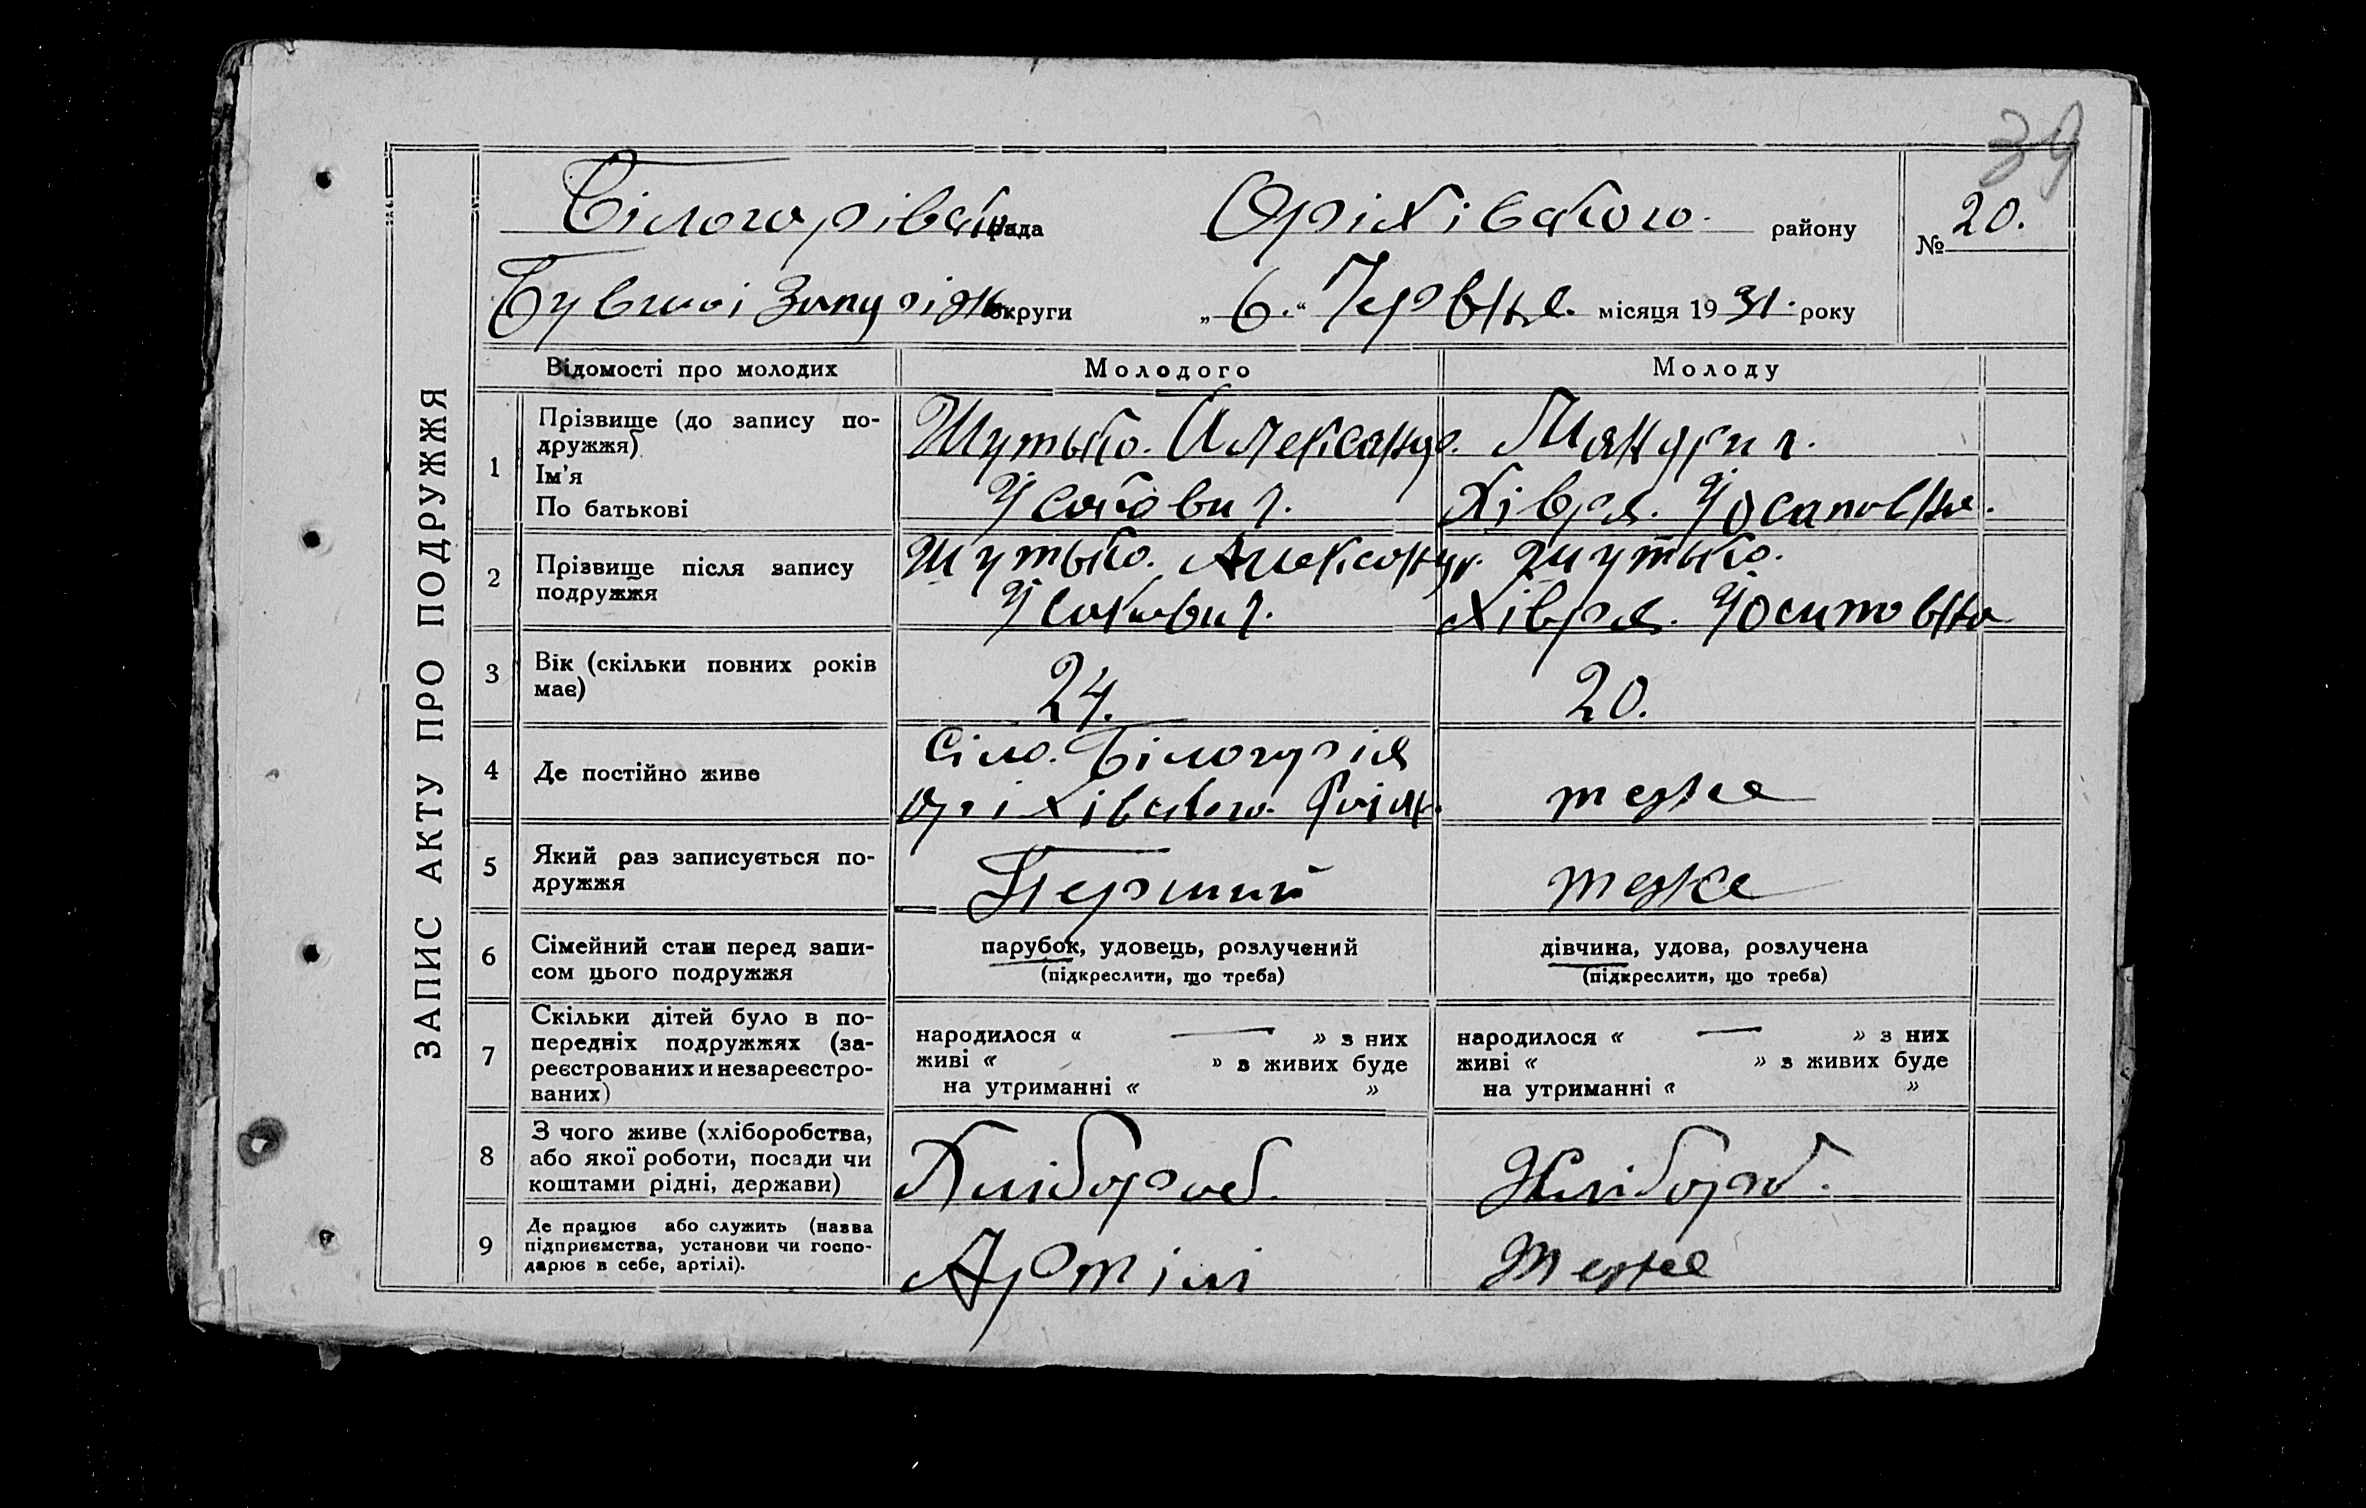 39
Білогорівська рада Оріхівського району № 20.
Бувшої Запоріжж округи „6.“ Червня. місяця 1931. року
ЗАПИС АКТУ ПРО ПОДРУЖЖЯ
Відомості про молодих Молодого Молоду
1 Прізвище (до запису по-
дружжя)
Ім'я
По батькові
Шутько. Александр. Мандрич.
Усакович. Хівря. Йосаповна.
2 Прізвище після запису
подружжя
Шутько. Александр. Шутько.
Усакович. Хівря. Йосиповна
3 Вік (скільки повних років
має)
24. 20.
4 Де постійно живе
Сіло. Білогорія
Оріхівського. Району. теже
5 Який раз записується по-
дружжя
Перший теже
6 Сімейний стан перед запи-
сом цього подружжя
парубок, удовець, розлучений
(підкреслити, що треба)
дівчина, удова, розлучена
(підкреслити, що треба)
7 Скільки дітей було в по-
передніх подружжях (за-
реєстрованих и незареєстро-
ваних)
народилося « — » з них
живі « » в живих буде
на утриманні « »
народилося « — » з них
живі « » в живих буде
на утриманні « »
8 З чого живе (хліборобства,
або якої роботи, посади чи
коштами рідні, держави)
Хлібороб. Хлібороб.
9 Де працює або служить (назва
підприємства, установи чи госпо-
дарює в себе, артілі).
Артілі Теже